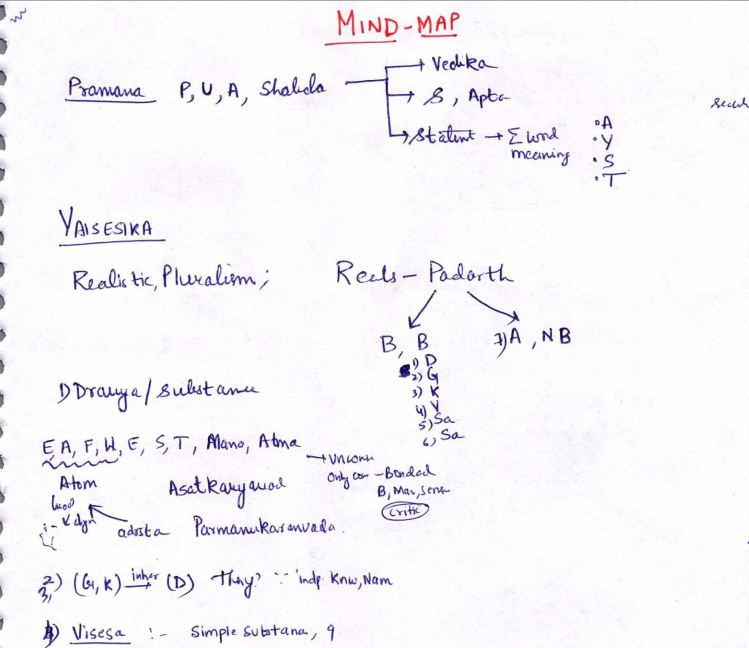 MIND-MAP
Pramana P, U, A, Shabda → Vedika
→ S, Apta
→ Statmt → Σ word meaning
• A
• Y
• S
• T
VAISESIKA
Realistic, Pluralism; Reals - Padarth
B, B 7) A, NB
1) D
2) G
3) K
4) V
5) Sa
6) Sa
1) Dravya/Substance
E A, F, W, E, S, T, Mano, Atma → Unconn
Only con - Bonded
Atom Asatkaryavad B, Man, Sense
Critic
adrsta Parmanukaranvada.
2) (G, K) inher → (D) They? ∵ indp Knw, Nam
3)
4) Visesa :- Simple Substana, 9